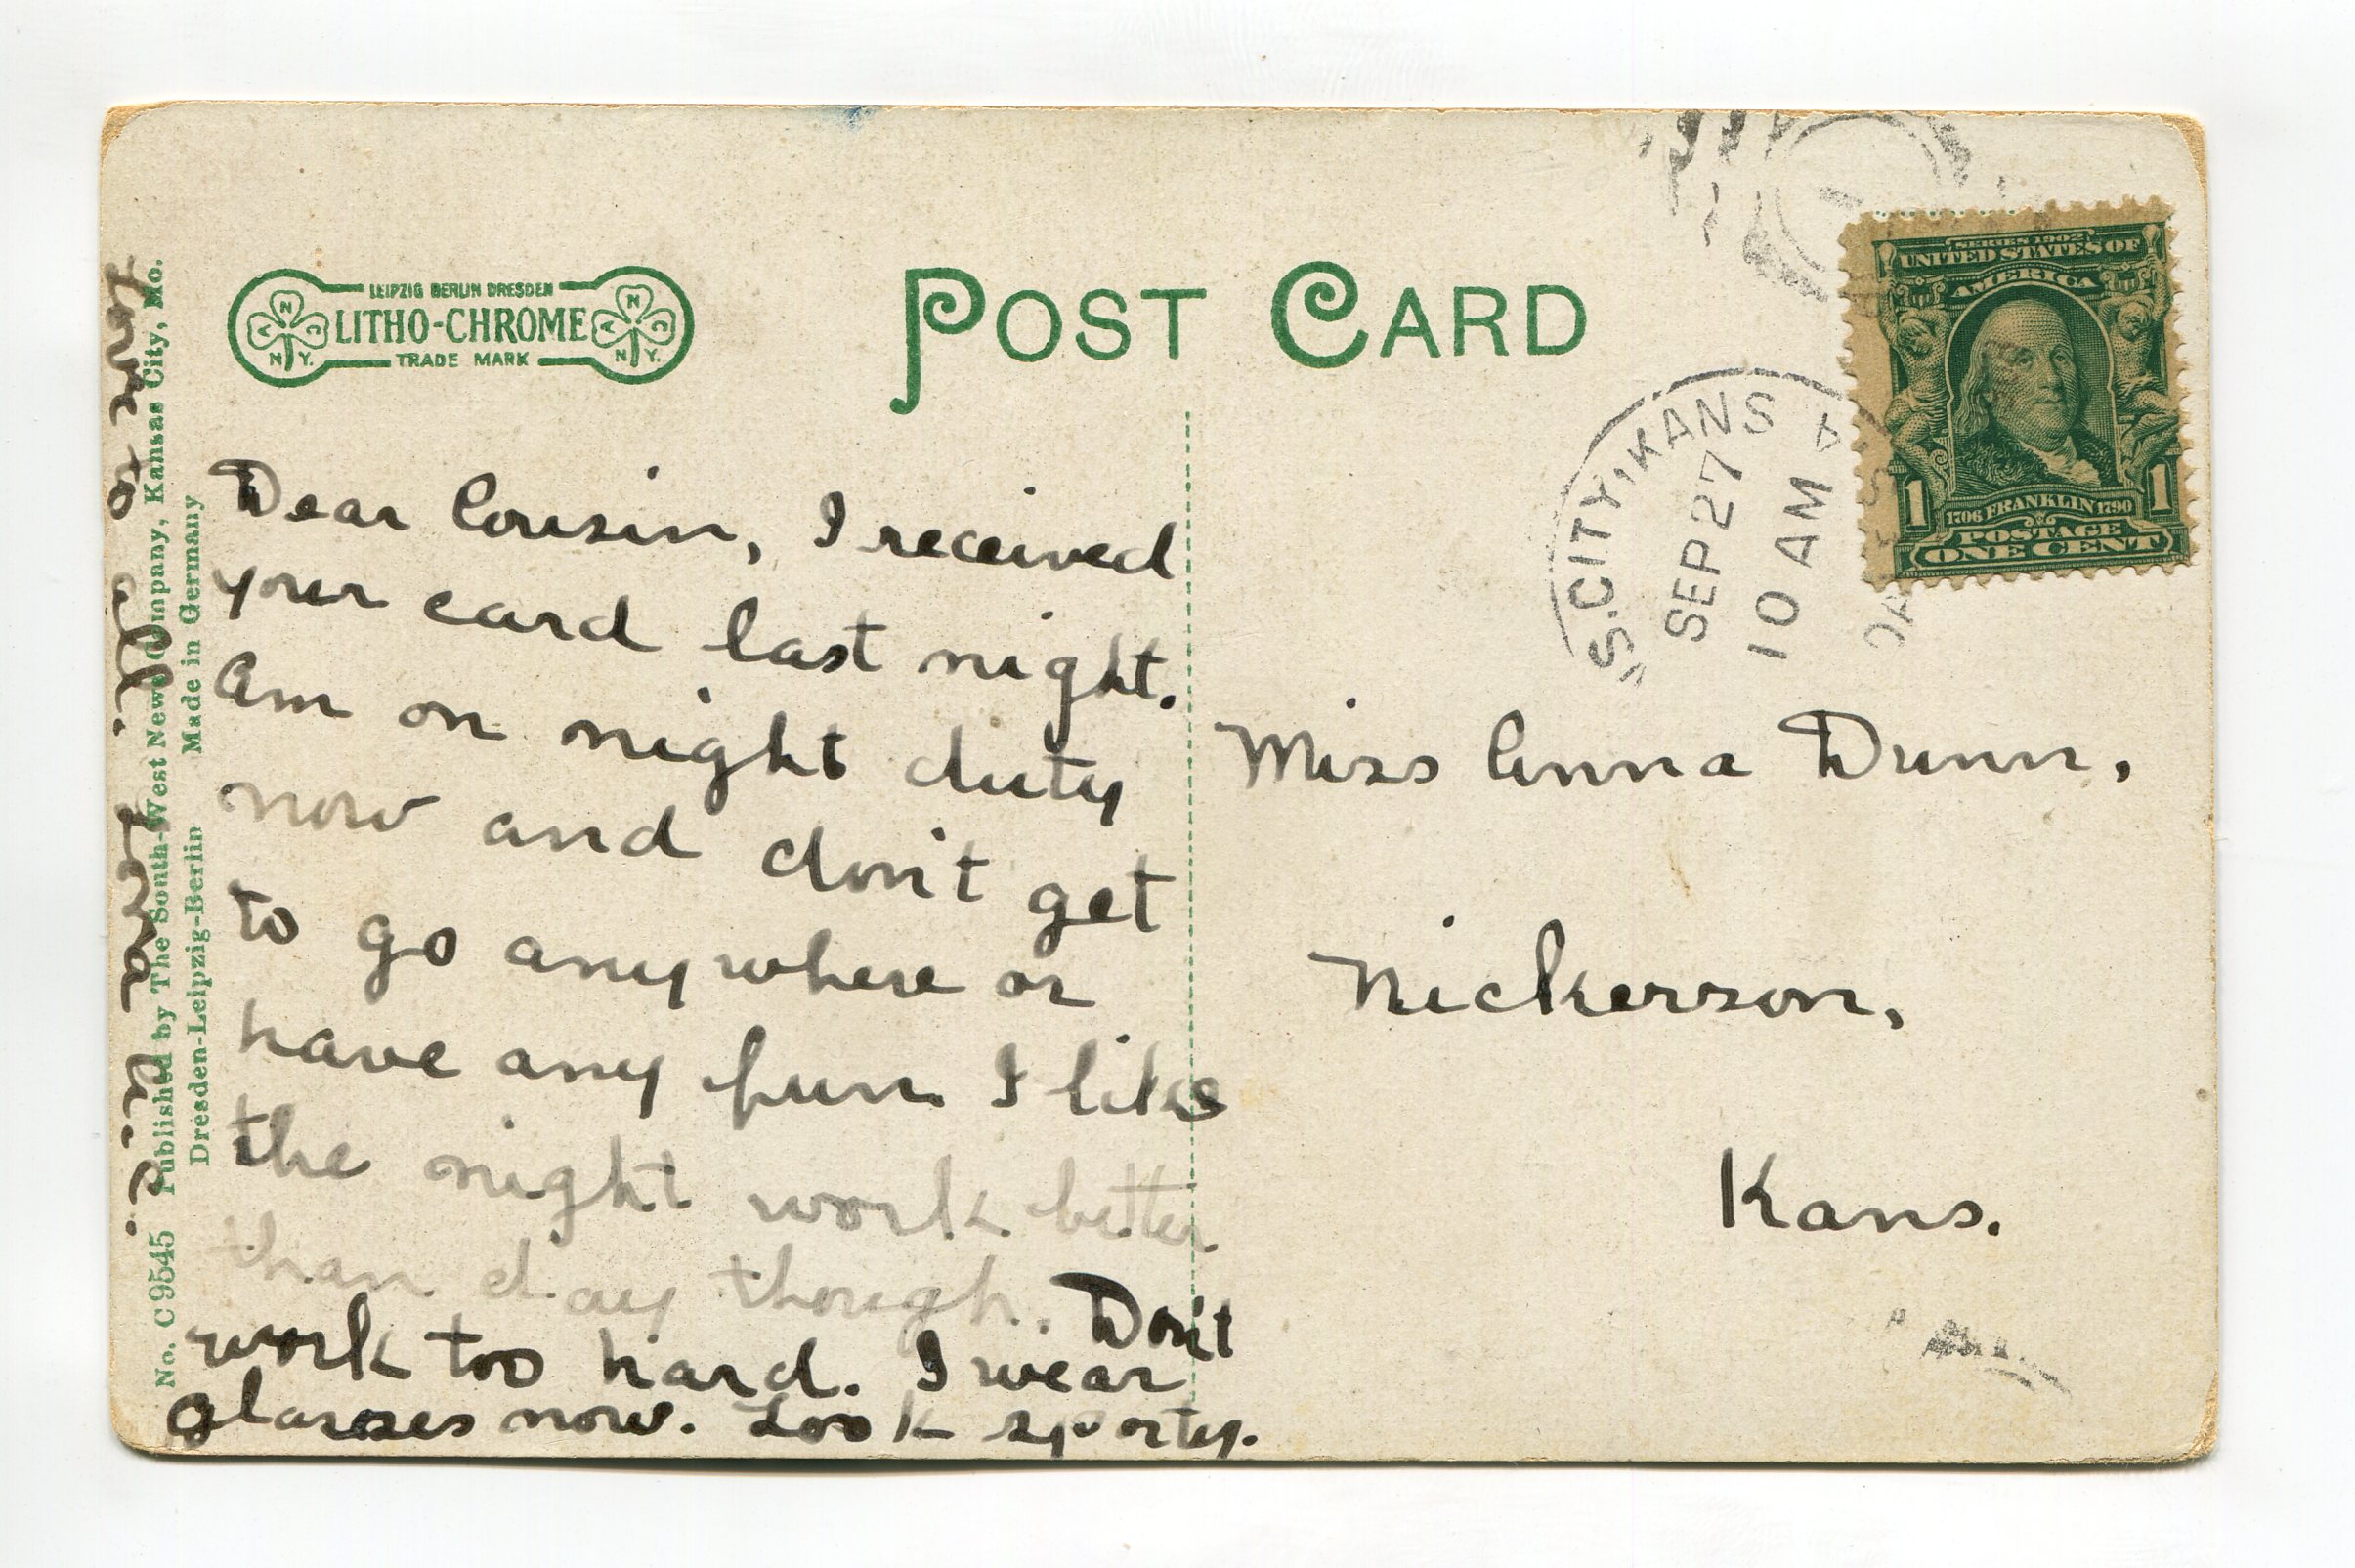 LEIPZIG BERLIN DRESDEN
LITHO-CHROME
TRADE MARK
A N C
N. Y.
A N C
N. Y.
POST CARD
S. CITY, KANS
SEP 27
10 AM
SERIES 1902
UNITED STATES OF
AMERICA
1 1
1706 FRANKLIN 1790
POSTAGE
ONE CENT
Dear Cousin, I received
your card last night.
Am on night duty
now and don't get
to go anywhere or
have any fun. I like
the night work better
than day though. Don't
work too hard. I wear
glasses now. Look sporty.
Love to all.
Miss Anna Dunn,
Nickerson,
Kans.
No. C 9545 Published by The South-West News Company, Kansas City, Mo.
Dresden-Leipzig-Berlin Made in Germany